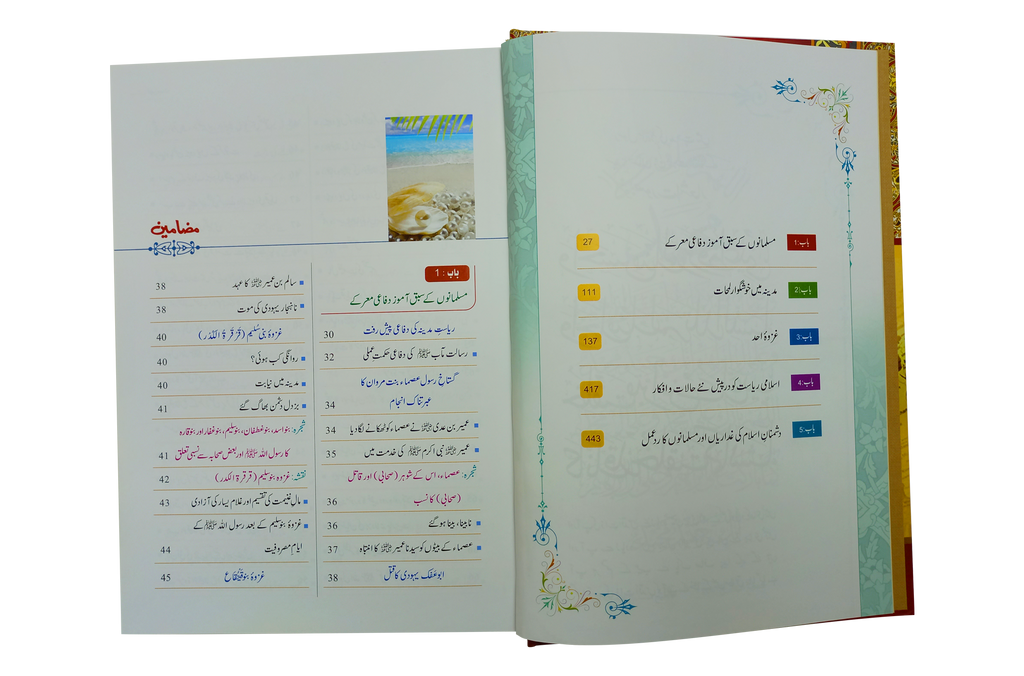 باب:1 مسلمانوں کے سبق آموز دفاعی معرکے 27
باب:2 مدینہ میں خوشگوار لمحات 111
باب:3 غزوۂ احد 137
باب:4 اسلامی ریاست کو درپیش نئے حالات و افکار 417
باب:5 دشمنانِ اسلام کی غداریاں اور مسلمانوں کا ردعمل 443
مضامین
باب : 1
مسلمانوں کے سبق آموز دفاعی معرکے
ریاستِ مدینہ کی دفاعی پیش رفت 30
رسالت مآب ﷺ کی دفاعی حکمت عملی 32
گستاخ رسول عصماء بنت مروان کا
عبرتناک انجام 34
عمیر بن عدی رضی اللہ عنہ نے عصماء کو ٹھکانے لگا دیا 34
عمیر رضی اللہ عنہ نبی اکرم ﷺ کی خدمت میں 35
شجرہ: عصماء، اس کے شوہر (صحابی) اور قاتل
(صحابی) کا نسب 36
نابینا، بینا ہو گئے 36
عصماء کے بیٹوں کو سیدنا عمیر رضی اللہ عنہ کا انتباہ 37
ابوعفک یہودی کا قتل 38
سالم بن عمیر رضی اللہ عنہ کا عہد 38
ناہنجار یہودی کی موت 38
غزوۂ بنی سُلیم (قَرْقَرۃُ الکُدْر) 40
روانگی کب ہوئی؟ 40
مدینہ میں نیابت 40
بزدل دشمن بھاگ گئے 41
شجرہ: بنو اسد، بنو غطفان، بنو سلیم، بنو غفار اور بنو قارہ
کا رسول اللہ ﷺ اور بعض صحابہ سے نسبی تعلق 41
نقشہ: غزوہ بنو سلیم (قرقرۃ الکدر) 42
مالِ غنیمت کی تقسیم اور غلام یسار کی آزادی 43
غزوۂ بنو سلیم کے بعد رسول اللہ ﷺ کے
ایام مصروفیت 44
غزوۂ بنو قینقاع 45